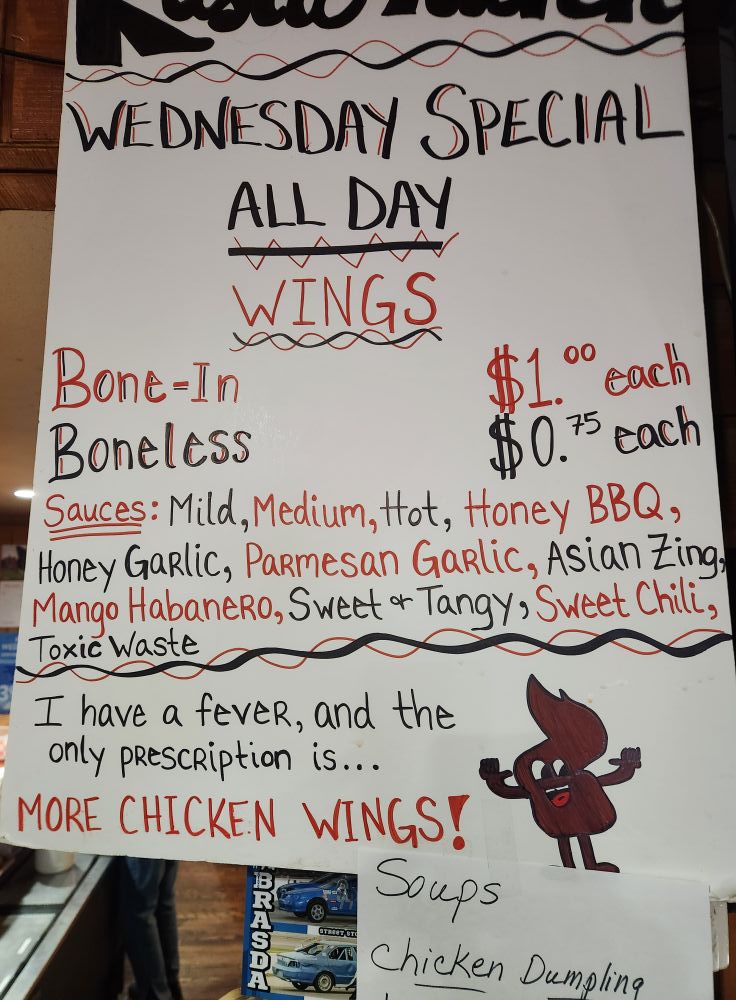 WEDNESDAY SPECIAL
ALL DAY
WINGS
Bone-In $1.00 each
Boneless $0.75 each
Sauces: Mild, Medium, Hot, Honey BBQ,
Honey Garlic, Parmesan Garlic, Asian Zing,
Mango Habanero, Sweet & Tangy, Sweet Chili,
Toxic Waste
I have a fever, and the
only prescription is...
MORE CHICKEN WINGS!
Soups
Chicken Dumpling
BRASDA